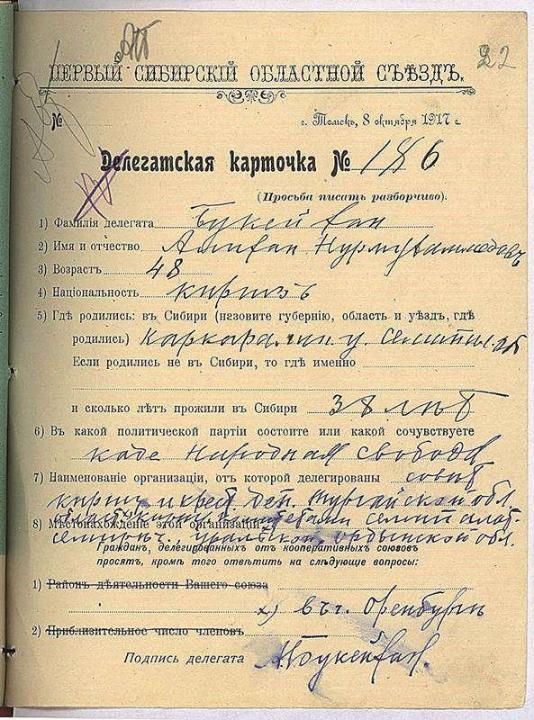 22
ПЕРВЫЙ СИБИРСКІЙ ОБЛАСТНОЙ СЪѢЗДЪ.
№
г. Томскъ, 8 октября 1917 г.
Делегатская карточка № 186
(Просьба писать разборчиво).
1) Фамилія делегата Букейхан
2) Имя и отчество Алихан Нурмухаммедовъ
3) Возрастъ 48
4) Національность киргизъ
5) Гдѣ родились: въ Сибири (назовите губернію, область и уѣздъ, гдѣ
родились) Каркаралин. у. Семипал. об
Если родились не въ Сибири, то гдѣ именно
и сколько лѣтъ прожили въ Сибири 38 лѣт
6) Въ какой политической партіи состоите или какой сочувствуете
каде Народная свобода
7) Наименованіе организаціи, отъ которой делегированы совѣт
кирги. крест. деп. Тургайской обл
8) Мѣстонахожденіе этой организаціи
Уральской, обл.
Гражданъ, делегированныхъ отъ кооперативныхъ союзовъ
просятъ, кромѣ того отвѣтить на слѣдующіе вопросы:
1) Районъ дѣятельности Вашего союза
х) въ г. Оренбургѣ
2) Приблизительное число членовъ
Подпись делегата А.Букейхан.